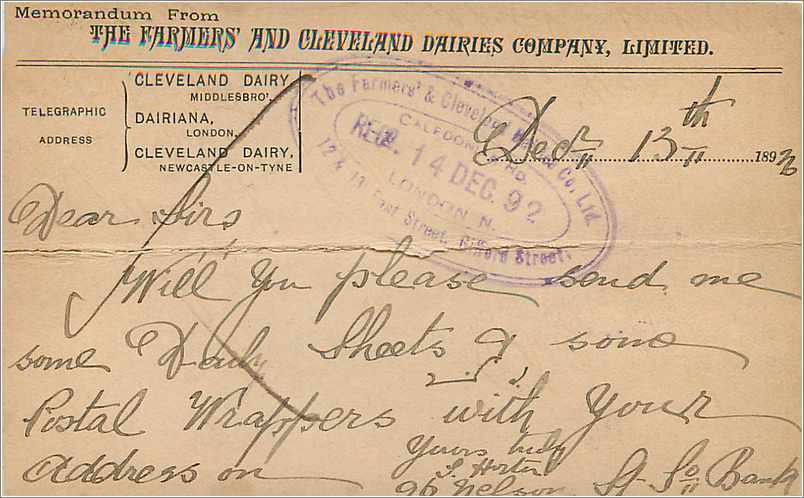 Memorandum From
THE FARMERS' AND CLEVELAND DAIRIES COMPANY, LIMITED.
TELEGRAPHIC ADDRESS
CLEVELAND DAIRY, MIDDLESBRO',
DAIRIANA, LONDON,
CLEVELAND DAIRY, NEWCASTLE-ON-TYNE
The Farmers' & Cleveland Co, Ltd.
CALEDONIAN RD.
RECD. 14 DEC. 92
LONDON N.
Street, Gifford Street,
Decr 13th 1892
Dear Sirs
Will You please send me
some Daily Sheets & some
Postal Wrappers with Your
Address on
Yours truly
96 Nelson St So Bank